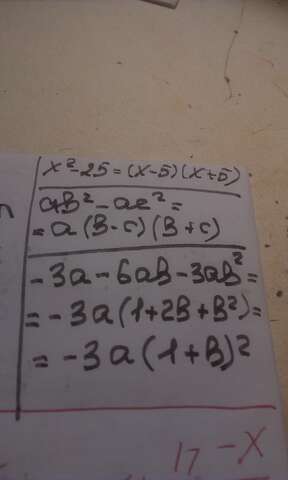 x²-25=(x-5)(x+5)
ab²-ac²=
=a(b-c)(b+c)
-3a-6ab-3ab²=
=-3a(1+2b+b²)=
=-3a(1+b)²
17-x